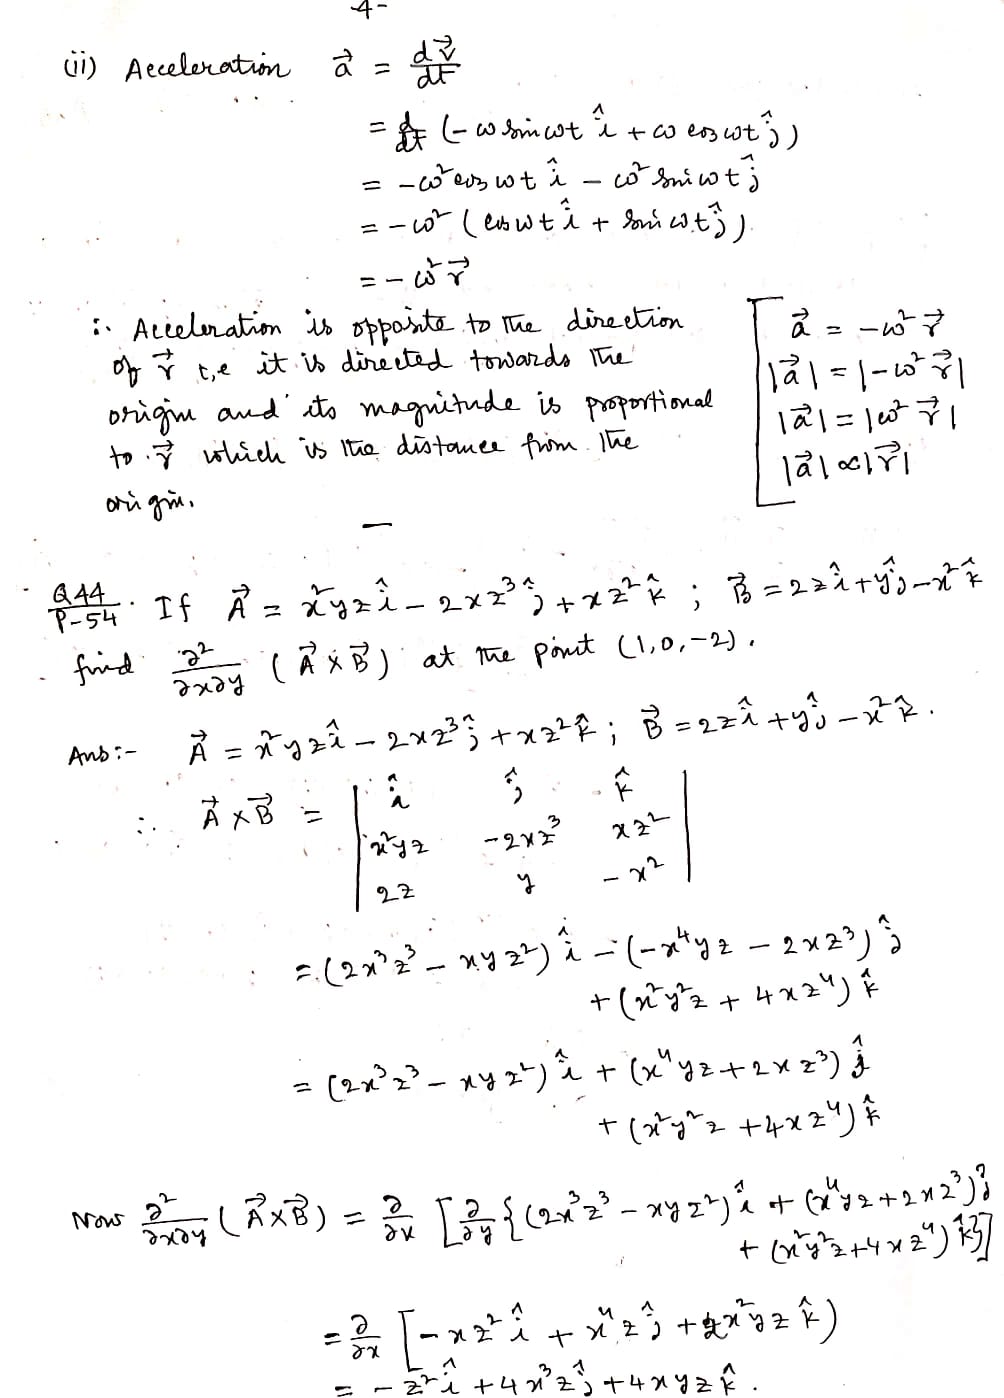 -4-
(ii) Acceleration $\vec{a} = \frac{d\vec{v}}{dt}$
$= \frac{d}{dt} (-\omega \sin\omega t \hat{i} + \omega \cos\omega t \hat{j})$
$= -\omega^2 \cos\omega t \hat{i} - \omega^2 \sin\omega t \hat{j}$
$= -\omega^2 (\cos\omega t \hat{i} + \sin\omega t \hat{j})$
$= -\omega^2 \vec{r}$
∴ Acceleration is opposite to the direction
of $\vec{r}$ i,e it is directed towards the
origin and its magnitude is proportional
to $\vec{r}$ which is the distance from the
origin.
$\vec{a} = -\omega^2 \vec{r}$
$|\vec{a}| = |-\omega^2 \vec{r}|$
$|\vec{a}| = |\omega^2 \vec{r}|$
$|\vec{a}| \propto |\vec{r}|$
Q44/P-54. If $\vec{A} = x^2yz\hat{i} - 2xz^3\hat{j} + xz^2\hat{k}$ ; $\vec{B} = 2z\hat{i} + y\hat{j} - x^2\hat{k}$
find $\frac{\partial^2}{\partial x \partial y} (\vec{A} \times \vec{B})$ at the point (1,0,-2).
Ans:- $\vec{A} = x^2yz\hat{i} - 2xz^3\hat{j} + xz^2\hat{k}$ ; $\vec{B} = 2z\hat{i} + y\hat{j} - x^2\hat{k}$.
∴ $\vec{A} \times \vec{B} = \begin{vmatrix} \hat{i} & \hat{j} & \hat{k} \\ x^2yz & -2xz^3 & xz^2 \\ 2z & y & -x^2 \end{vmatrix}$
$= (2x^3z^3 - xyz^2)\hat{i} - (-x^4yz - 2xz^3)\hat{j}$
$+ (x^2y^2z + 4xz^4)\hat{k}$
$= (2x^3z^3 - xyz^2)\hat{i} + (x^4yz + 2xz^3)\hat{j}$
$+ (x^2y^2z + 4xz^4)\hat{k}$
Now $\frac{\partial^2}{\partial x \partial y} (\vec{A} \times \vec{B}) = \frac{\partial}{\partial x} [\frac{\partial}{\partial y} \{(2x^3z^3 - xyz^2)\hat{i} + (x^4yz + 2xz^3)\hat{j}$
$+ (x^2y^2z + 4xz^4)\hat{k}\}]$
$= \frac{\partial}{\partial x} [-xz^2\hat{i} + x^4z\hat{j} + 2x^2yz\hat{k})$
$= -z^2\hat{i} + 4x^3z\hat{j} + 4xyz\hat{k}$.